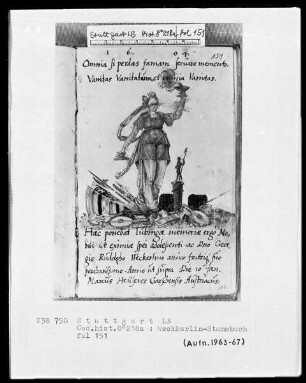 Stuttgart LB Hist. 8° 218a, fol 151
1 6. 0 4.
151
Omnia si perdas famam servare memento.
Vanitas Vanitatum, et omnia Vanitas.
Hac ponebat Tubingæ memoriæ ergo No-
bili et eximiæ spei adolescenti ac Dno Geor-
gio Rudolpho Weckerlino amico
Anno ut supra Die 10 Jan.
Marcus Austriacus.
238 750 Stuttgart LB
Cod.hist.8°218a : Weckherlin-Stammbuch
fol 151
(Aufn.1963-67)